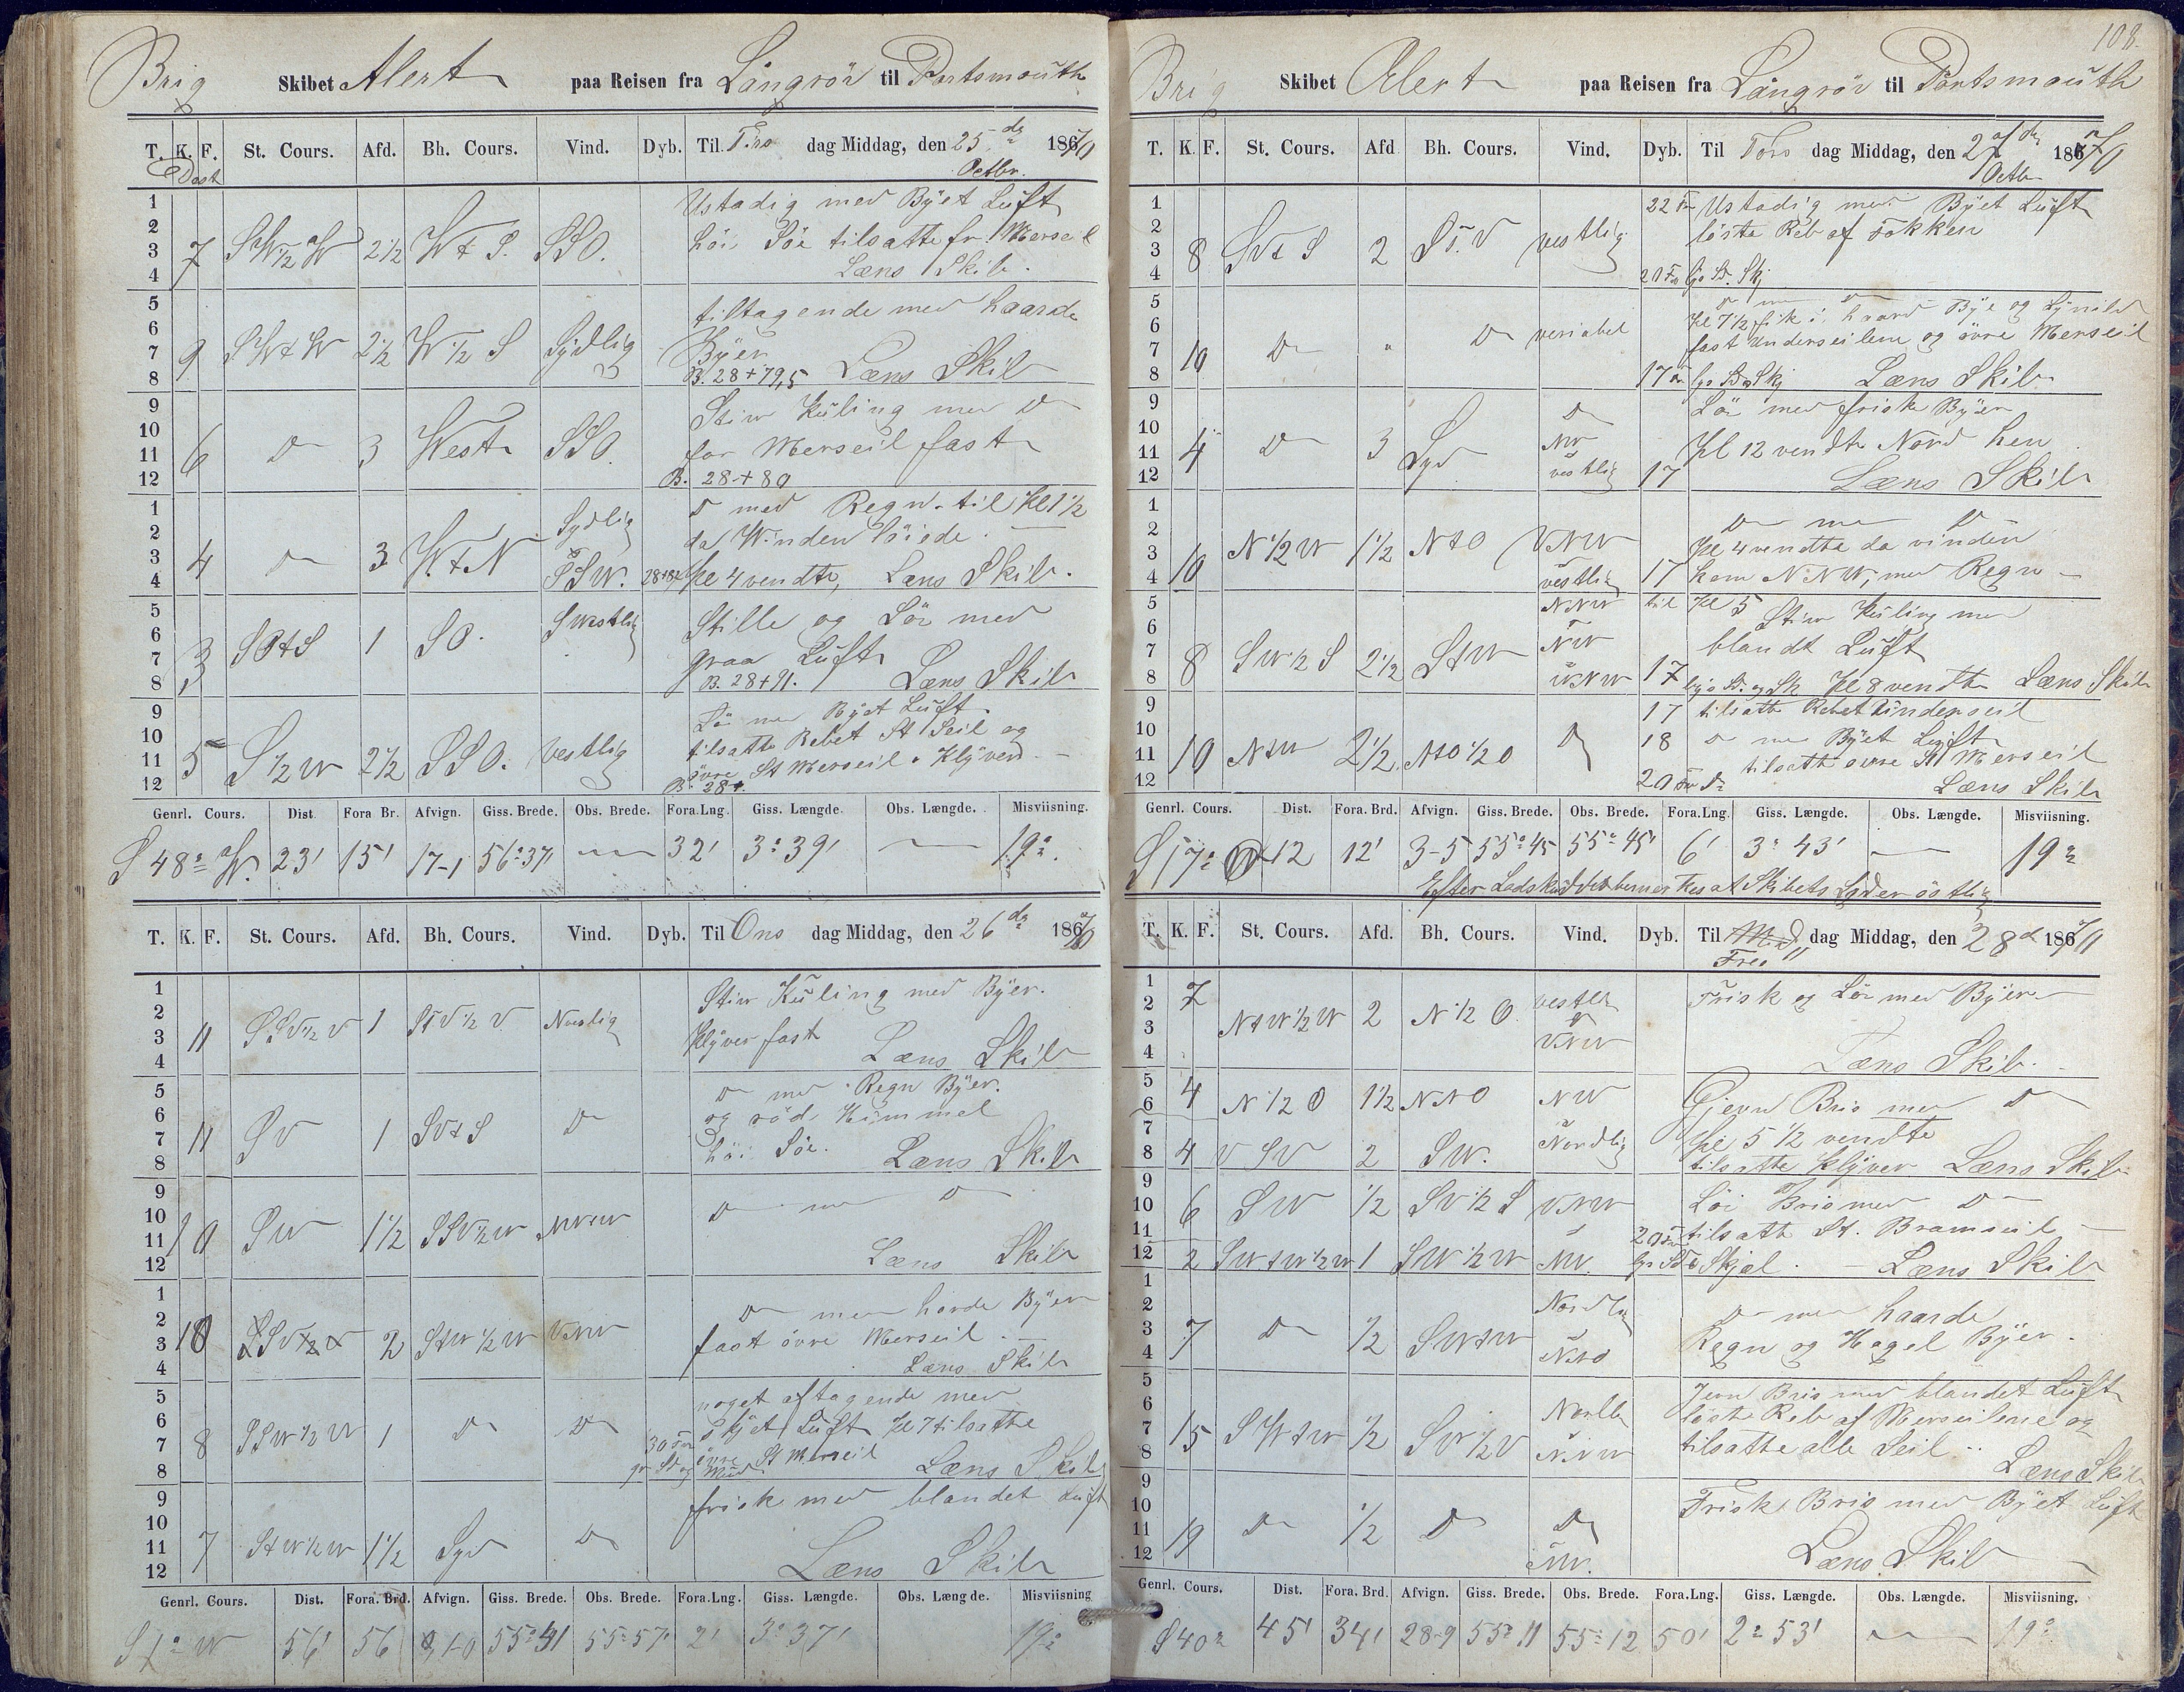 Brig Skibet Alert paa Reisen fra Långrör til Portsmouth
T. K. F. St. Cours. Afd. Bh. Cours. Vind. Dyb. Til Tirs dag Middag, den 25 de 1867/0
Octbr.
1
2
3
4
7 2 1/2 W t S. SSO.
Ustadig med Byet Luft
höi Söe tilsatte fr. Merseil
Læns Skib.
5
6
7
8
9 SW t W 2 1/2 W 1/2 S Sydlig
tiltagende med haarde
Byer
B. 28+79,5 Læns Skib
9
10
11
12
6 D 3 West SSO
Stiv Kuling med D
for Merseil fast
B. 28+80
1
2
3
4
4 D 3 W. t N Sydlig SSW.
D med Regn til Kl 1 1/2
da Winden löiede.
Kl 4 vendte, Læns Skib.
5
6
7
8
3 SO t S 1 SO. SWestlig
Stille og Lör med
graa Luft
B. 28+91. Læns Skib
9
10
11
12
5 S 1/2 W 2 1/2 SSO. Vestlig
Byet Luft.
tilsatte Rebet St Seil og
övre St Merseil. Klyver
B. 28+
Genrl. Cours. Dist. Fora Br. Afvign. Giss. Brede. Obs. Brede. Fora.Lng. Giss. Længde. Obs. Længde. Misviisning.
S 48° W. 23' 15' 17-1 56°37' 32' 3°39' 19°.
T. K. F. St. Cours. Afd. Bh. Cours. Vind. Dyb. Til Ons dag Middag, den 26 de 1867/0
1
2
3
4
11 1 StV 1/2 V
Stiv Kuling med Byer.
Klyver fast Læns Skib
5
6
7
8
11 SV 1 SV t S D
D med Regn Byer.
og röd Himmel
höi Söe. Læns Skib
9
10
11
12
10 SW 1 1/2 SSV 1/2 W
D med D
Læns Skib
1
2
3
4
10 2 StW 1/2 W VNW
D med harde Byer
fast övre Merseil.
Læns Skib
5
6
7
8
8 SSW 1/2 W 1 D D
noget aftagende med
Skyet Luft Kl 7 tilsatte
övre St Merseil Læns Skib
9
10
11
12
7 StW 1/2 W 1 1/2 Syd D
frisk med blandet Luft
Læns Skib
Genrl. Cours. Dist. Fora. Brd. Afvign. Giss. Brede. Obs. Brede. Fora.Lng. Giss. Længde. Obs. Længde. Misviisning
S 1° W 56' 56 1-0 55°41 55°57' 2' 3°37' 19°
108.
Brig Skibet Alert paa Reisen fra Långrör til Portsmouth
T. K. F. St. Cours. Afd Bh. Cours. Vind. Dyb. Til Tors dag Middag, den 27 de 1867/0
Octbr
1
2
3
4
8 SV t S 2 vestlig
22 Fv Ustadig med Byet Luft
löste Reb af Fokken
5
6
7
8
10 D " D veriabel
Kl 7 1/2 fik i haard Bye og Lynild
fast Underseilene og övre Merseil
Læns Skib
9
10
11
12
4 D 3 Syd D NW vestlig 17
Lör med friske Byer
Kl 12 vendte Nord hen
Læns Skib
1
2
3
4
10 N 1/2 W 1 1/2 N t O VNW vestlig 17
D med D
Kl 4 vendte da vinden
kom NNW, med Regn
5
6
7
8
8 SW 1/2 S 2 1/2 S t W NNW NW 17
til Kl 5 Stiv Kuling med
blandt Luft
Kl 8 vendte Læns Skib
9
10
11
12
10 N t W 2 1/2 N t O 1/2 O D
17 tilsatte Rebet Underseil
18 D med Byet Luft
tilsatte övre St Merseil
Læns Skib
Genrl. Cours. Dist. Fora. Brd. Afvign. Giss. Brede. Obs. Brede. Fora.Lng. Giss. Længde. Obs. Længde. Misviisning.
S 17° W 12 12' 3-5 55°45 55°45' 6' 3°43' 19°
Efter Lodskud bemerkes at Skibets Lgd er östlig
T. K. F. St. Cours. Afd. Bh. Cours. Vind. Dyb. Til Fre dag Middag, den 28 d 1867/0
1
2
3
4
7 N t W 1/2 W 2 N 1/2 O VNW
Frisk og Lör med Byer
Læns Skib.
5
6
4 N 1/2 O 1 1/2 NNO NW
Gjevn Bris med D
7
8
4 VSV 2 SW. Nordlig
Kl 5 1/2 vendte
tilsatte Klyver Læns Skib
9
10
6 SW 1/2 SV 1/2 S VNW
Löi Bris med D
11
12
2 SW t W 1/2 W 1 SW 1/2 W NW.
tilsatte St. Bramseil
Skjæl. Læns Skib
1
2
3
4
7 D 1/2 SW t W Nordlig
D med haarde
Regn og Hagel Byer.
5
6
7
8
15 SW t W 1/2 SV 1/2 V NNW
Jevn Bris med blandet Luft
löste Reb af Merseilene og
tilsatte alle Seil
Læns Skib
9
10
11
12
19 D 1/2 D D NW.
Frisk Bris med Byet Luft
Læns Skib
Genrl. Cours. Dist. Fora. Brd. Afvign. Giss. Brede. Obs. Brede. Fora.Lng. Giss. Længde. Obs. Længde. Misviisning.
S 40° 45' 34' 28-9 55°11 55°12 50' 2°53' 19°